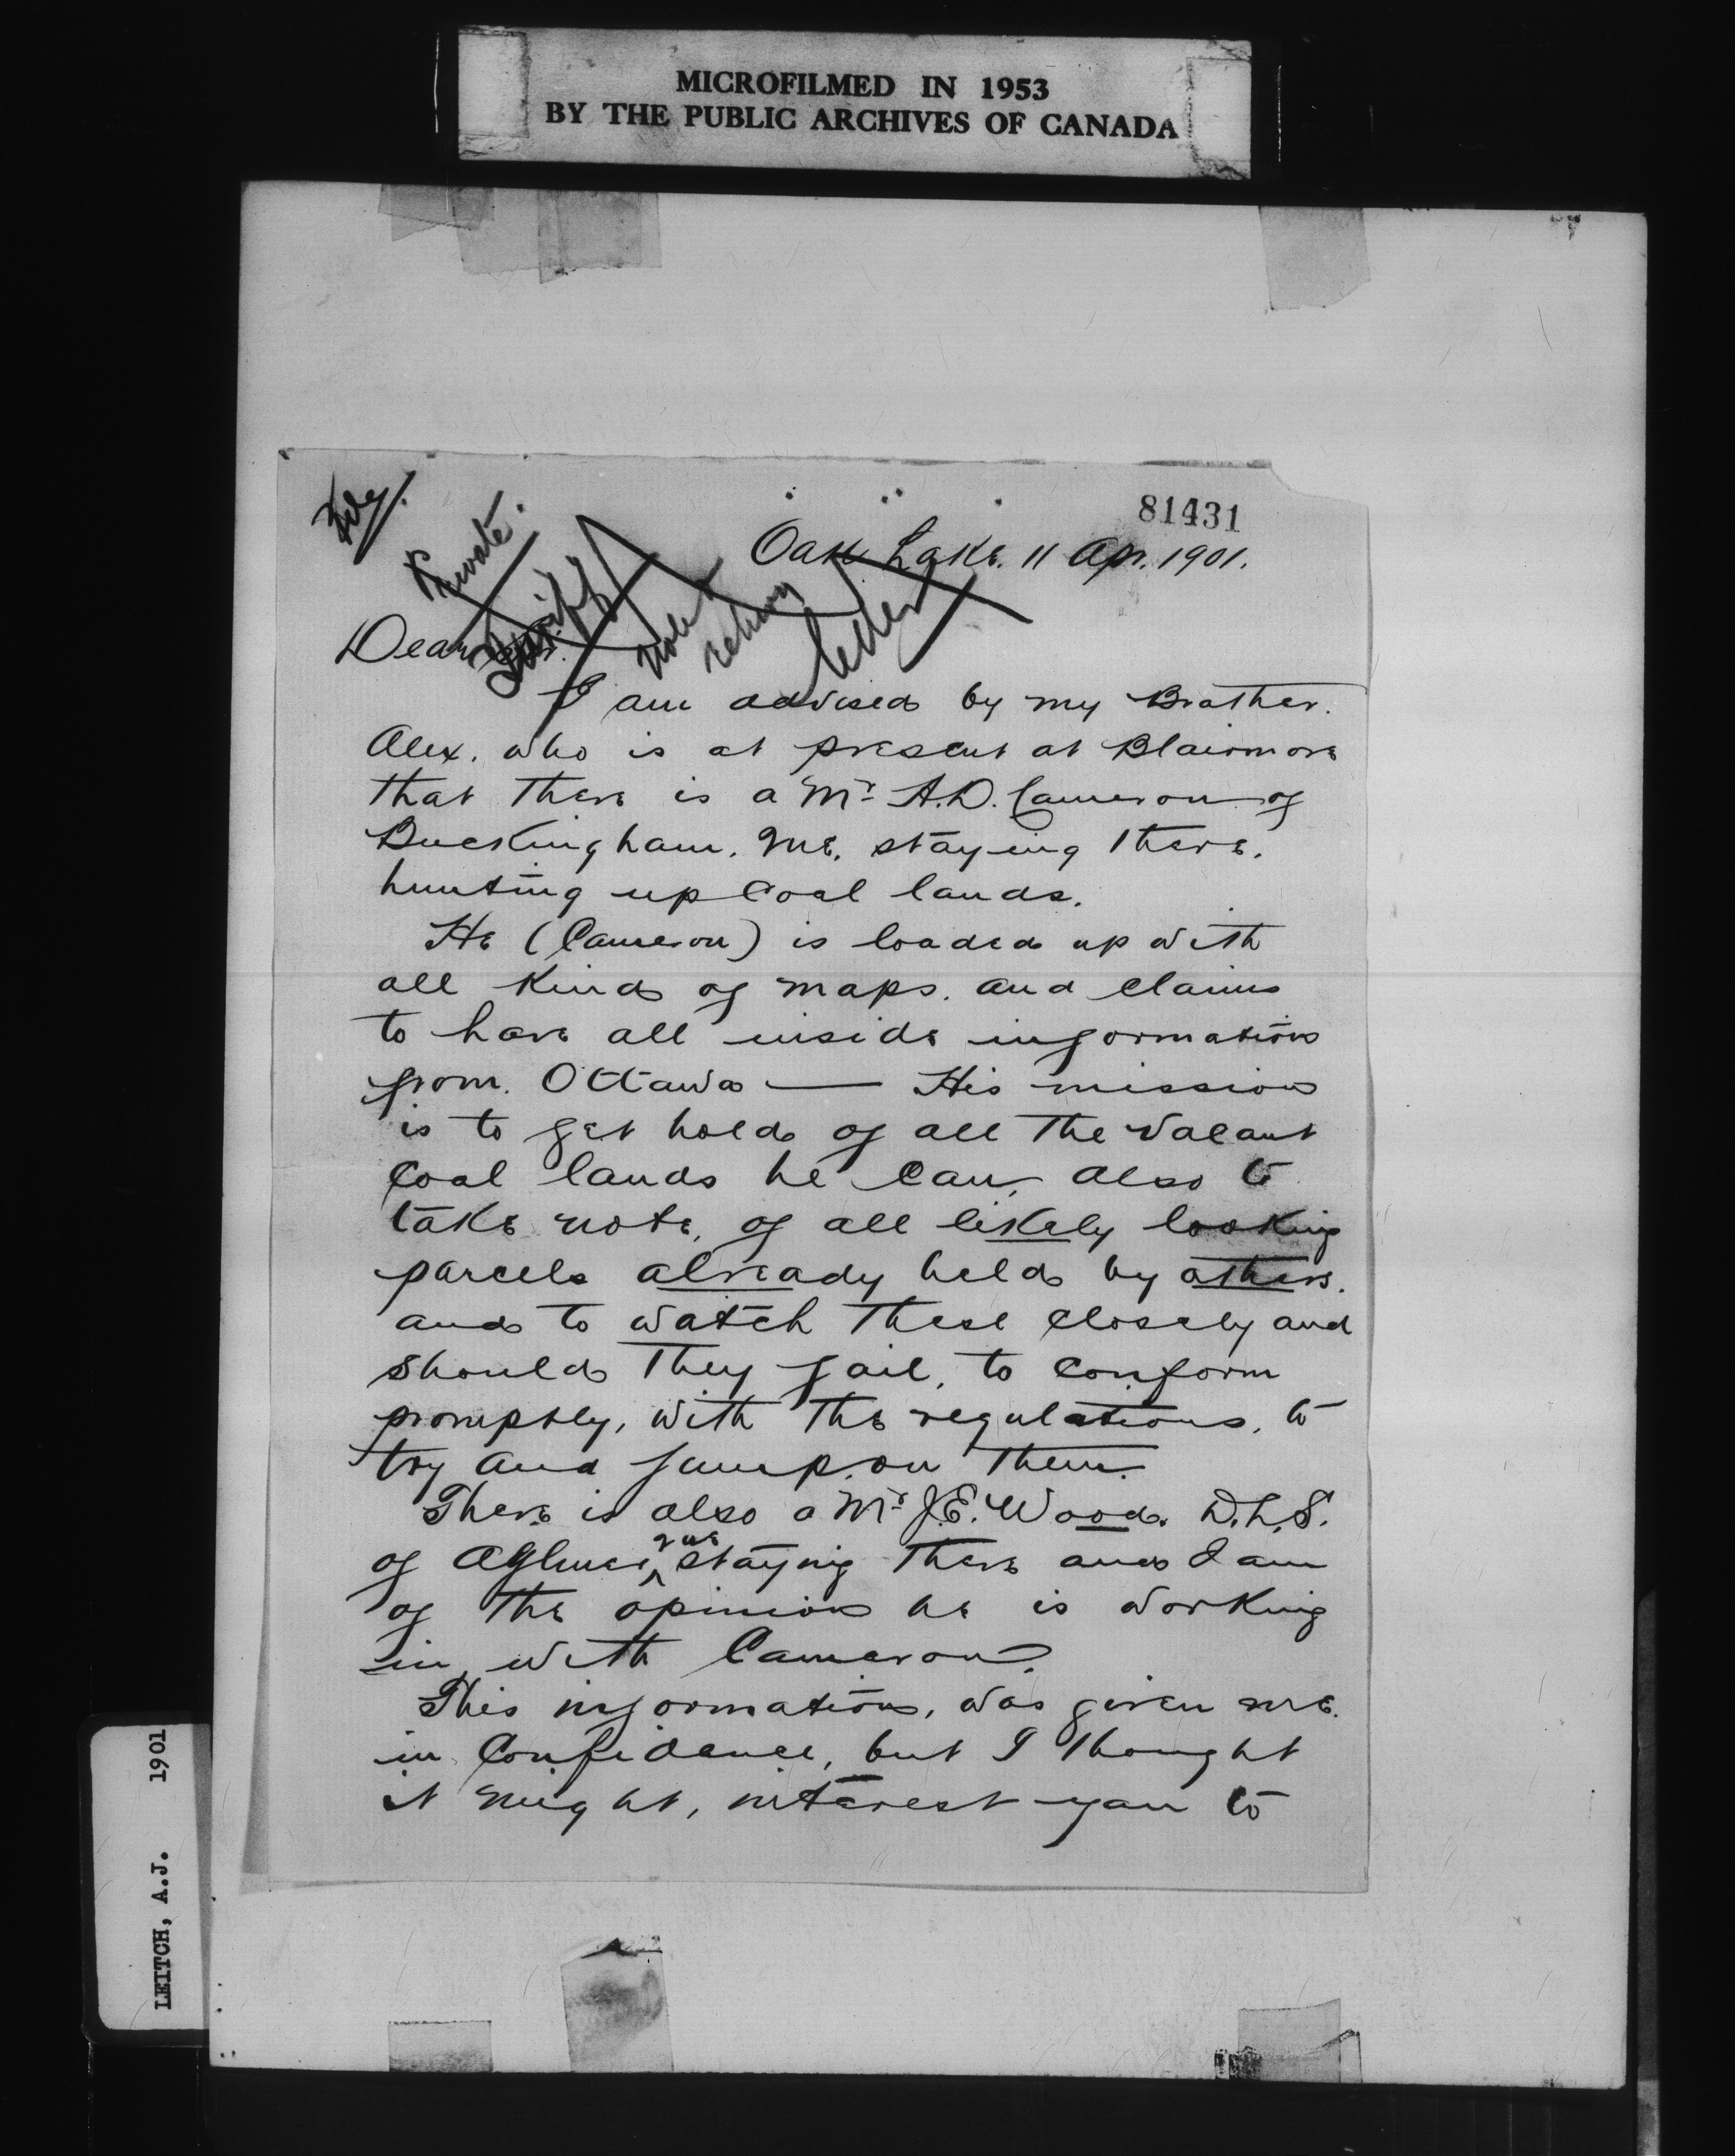 MICROFILMED IN 1953
BY THE PUBLIC ARCHIVES OF CANADA
81431
Private.
Note
return
letter
Oak Lake. 11 Apr. 1901.
Dear Sir.
I am advised by my Brother.
Alex. who is at present at Blairmore
that there is a Mr. A.D. Cameron of
Buckingham. Que. staying there.
hunting up Coal lands.
He (Cameron) is loaded up with
all kinds of maps. and claims
to have all inside information
from. Ottawa — His mission
is to get hold of all the vacant
Coal lands he can, also to
take note, of all likely looking
parcels already held by others.
and to watch these closely and
should they fail, to conform
promptly, with the regulations, to
try and jump on them.
There is also a Mr. J.E. Wood. D.L.S.
of Aylmer, Que staying there and I am
of the opinion he is working
in with Cameron.
This information, was given me.
in Confidence, but I thought
it might, interest you to
LEITCH, A.J. 1901